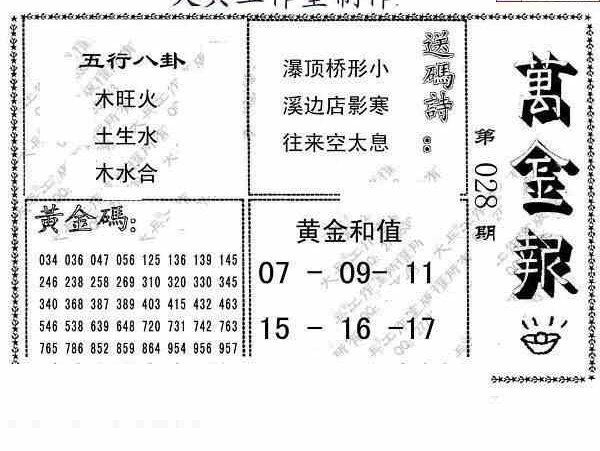 萬金報
第028期
五行八卦
木旺火
土生水
木水合
送碼詩：
瀑顶桥形小
溪边店影寒
往来空太息
黃金碼：
034 036 047 056 125 136 139 145
246 238 258 269 310 320 330 345
340 368 387 389 403 415 432 463
546 538 639 648 720 731 742 763
765 786 852 859 864 954 956 957
黄金和值
07 - 09- 11
15 - 16 -17